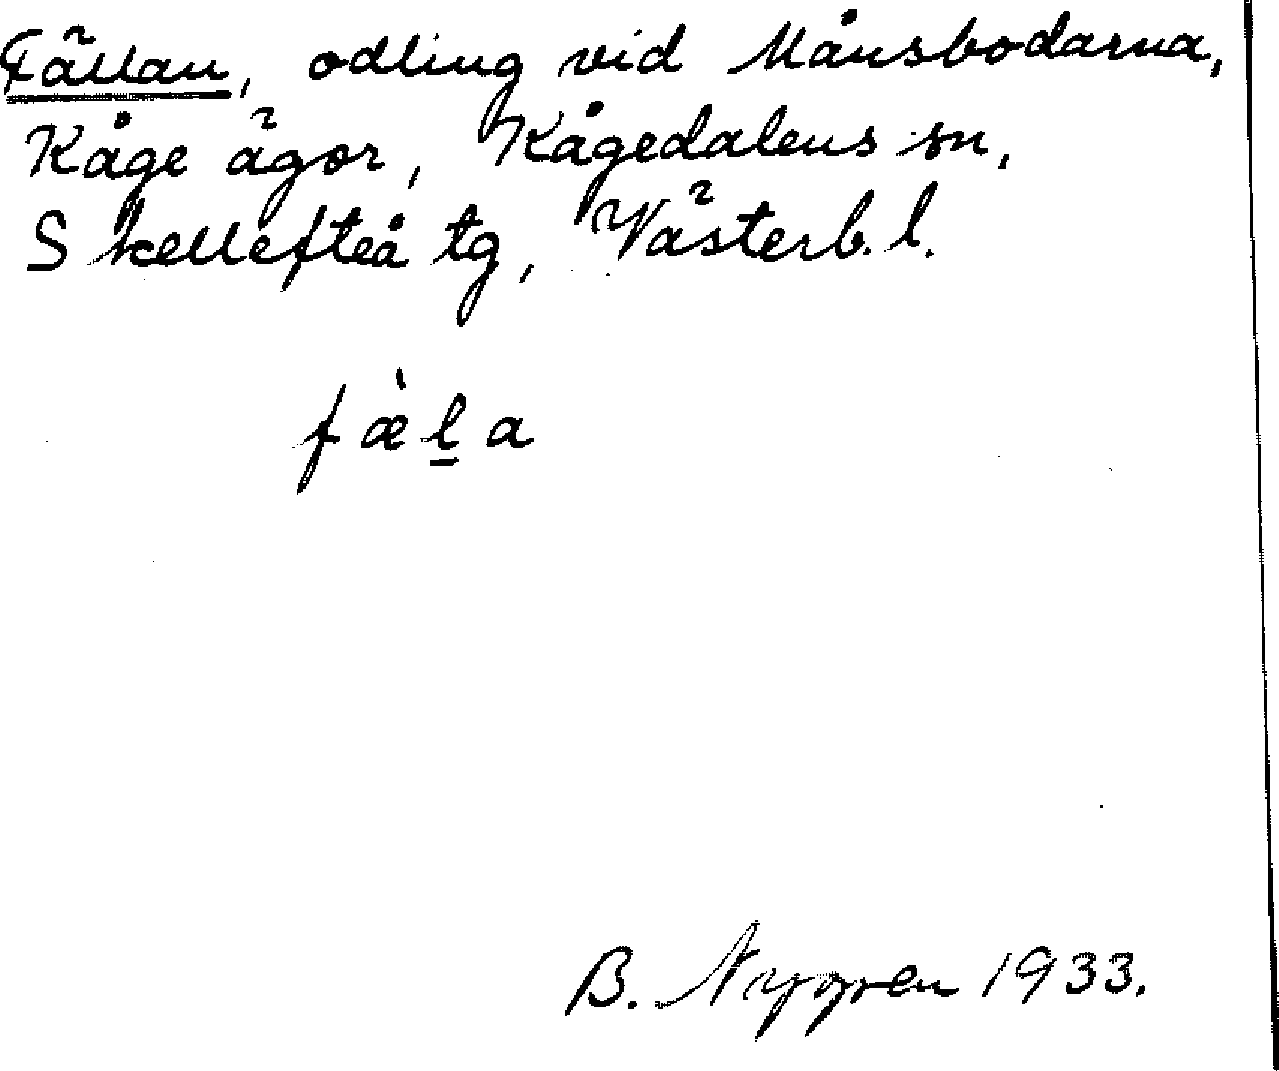 Fällan, odling vid Månsbodarna,
Kåge ägor, Kågedalens sn,
Skellefteå tg, Västerb. l.
fæ̀l̲a
B. Nygren 1933.